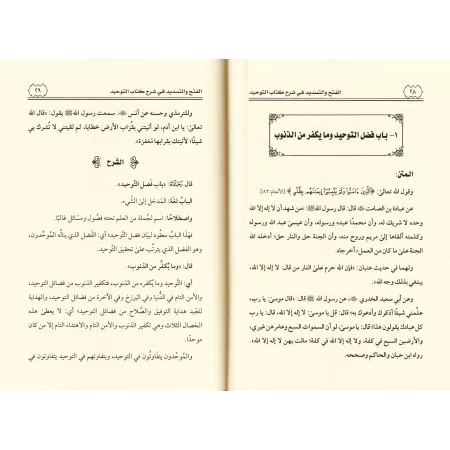 الفتح والتسديد في شرح كتاب التوحيد
٢٨
١- باب فضل التوحيد وما يكفر من الذنوب
المتن:
وقول الله تعالى: ﴿الَّذِينَ ءَامَنُوا وَلَمْ يَلْبِسُوا إِيمَانَهُم بِظُلْمٍ﴾ [الأنعام: ٨٢].
عن عبادة بن الصامت قال: قال رسول الله ﷺ: «من شهد أن لا إله إلا الله
وحده لا شريك له، وأن محمدًا عبده ورسوله، وأن عيسى عبد الله ورسوله
وكلمته ألقاها إلى مريم وروح منه، وأن الجنة حق والنار حق؛ أدخله الله
الجنة على ما كان من العمل» أخرجاه.
ولهما في حديث عتبان: «فإن الله حرم على النار من قال: لا إله إلا الله،
يبتغي بذلك وجه الله».
وعن أبي سعيد الخدري، عن رسول الله ﷺ قال: «قال موسى: يا رب،
علّمني شيئًا أذكرك وأدعوك به؛ قال: قل يا موسى: لا إله إلا الله، قال: يا رب
كل عبادك يقولون هذا؛ قال: يا موسى، لو أن السموات السبع وعامرهن غيري،
والأرضين السبع في كفة، ولا إله إلا الله في كفة؛ مالت بهن لا إله إلا الله».
رواه ابن حبان والحاكم وصححه.
٢٩
الفتح والتسديد في شرح كتاب التوحيد
وللترمذي وحسنه عن أنس: سمعت رسول الله ﷺ يقول: «قال الله
تعالى: يا ابن آدم، لو أتيتني بقُراب الأرض خطايا، ثم لقيتني لا تُشرك بي
شيئًا؛ لأتيتك بقرابها مغفرة».
الشرح
قال: «باب فضل التَّوحيد».
الباب لغةً: المدخل إلى الشَّيء.
واصطلاحًا: اسم لجُملة من العلم تحته فصُول ومسائل غالبًا.
فهذا الباب معقود لبيان فضل التَّوحيد؛ أي: الفضل الذي يناله الموحِّدون،
وهو الفضل الذي يترتَّب على تحقيق التَّوحيد.
قال: «وما يُكفِّر من الذنوب».
أي: التَّوحيد وما يُكفره من الذنوب، فتكفير الذنوب من فضائل التوحيد،
والأمن التام في الدُّنيا وفي البرزخ وفي الآخرة من فضائل التوحيد، والهداية
للعبد هداية التوفيق والصَّلاح من فضائل التوحيد؛ أي: لا يعطى هذه
الخصال الثلاث وهي تكفير الذنوب والأمن التام والاهتداء التام إلا من كان
موحدًا.
والموحِّدون يتفاوتُون في التوحيد، وبتفاوتهم في التوحيد يتفاوتون في